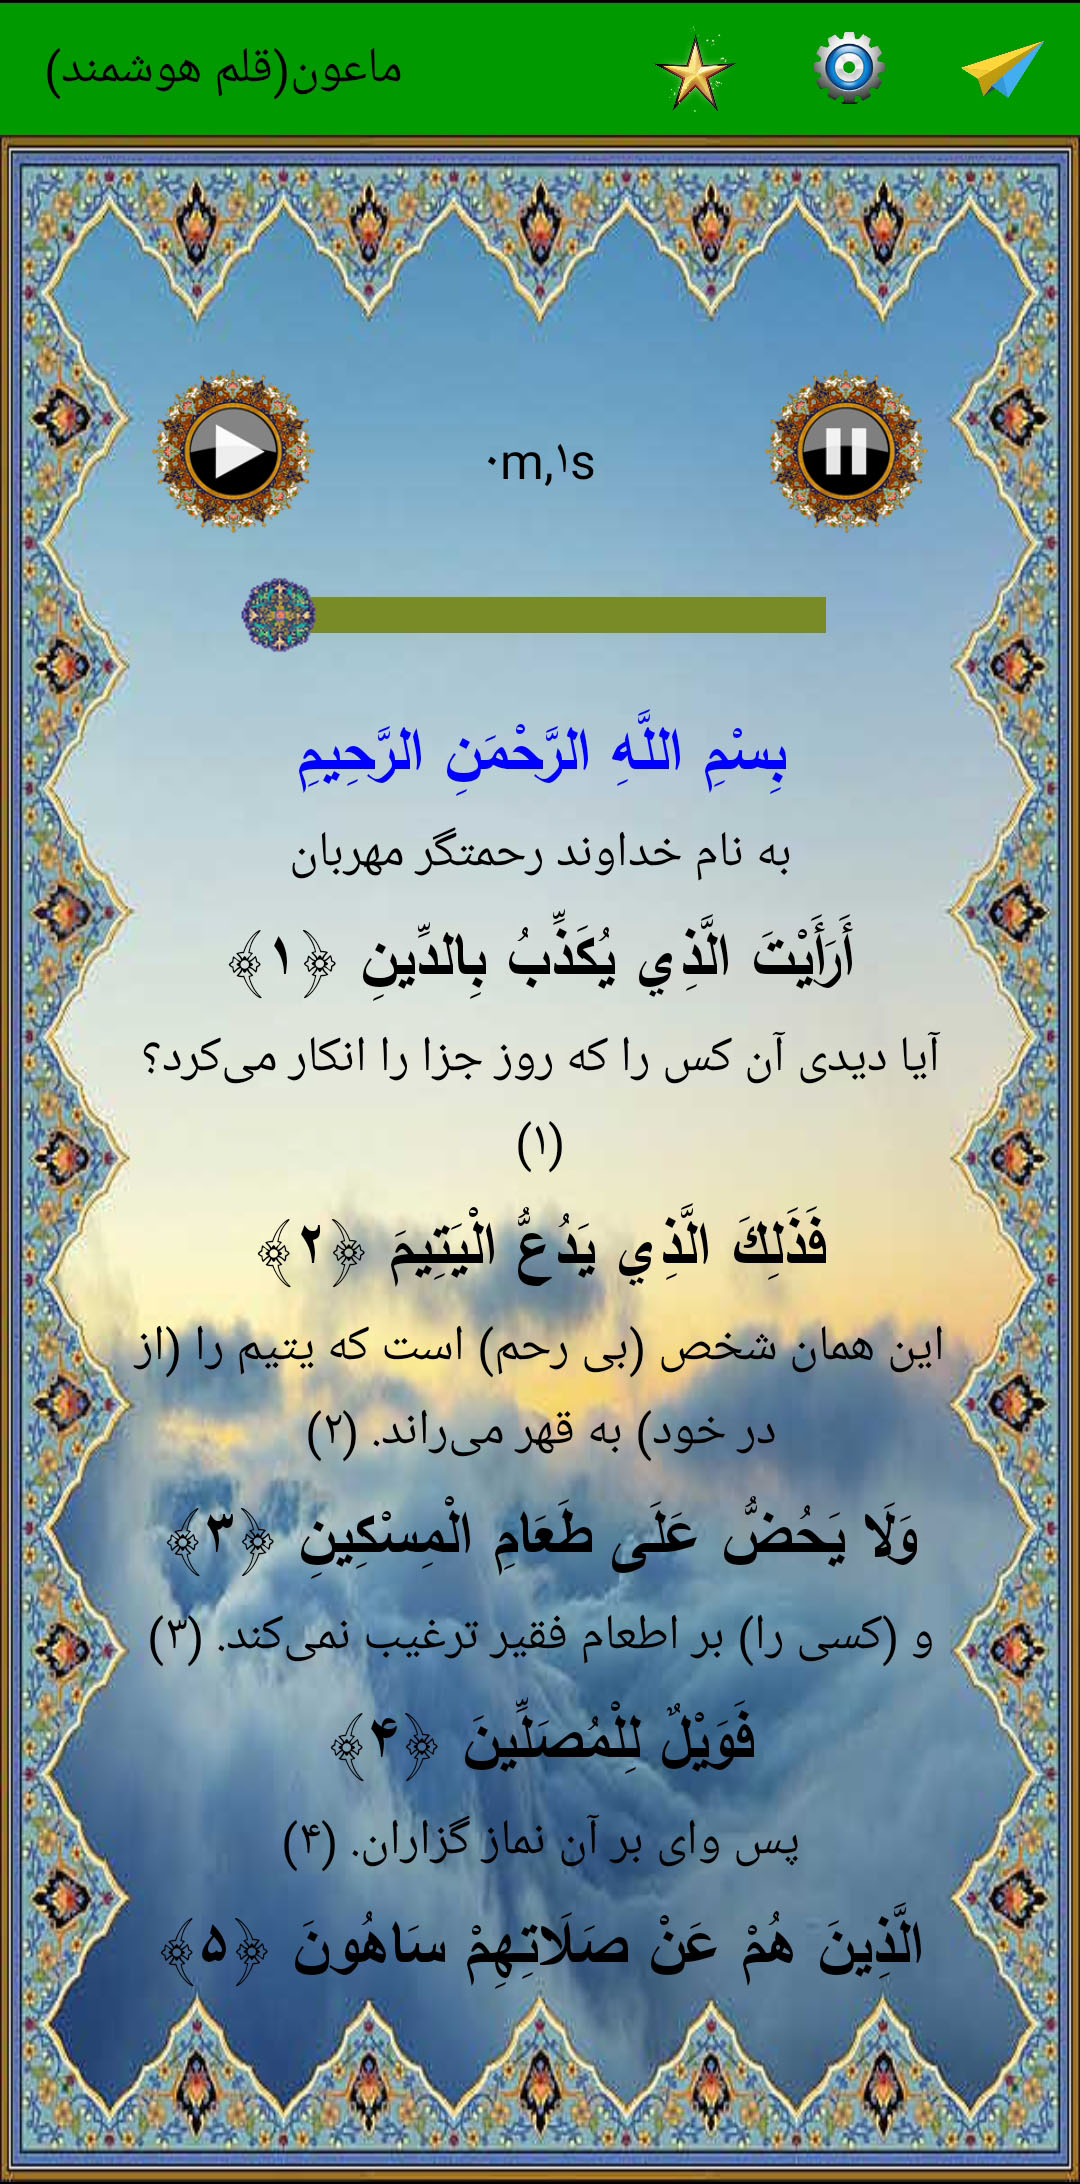 ماعون(قلم هوشمند)
۰m,۱s
بِسْمِ اللَّهِ الرَّحْمَنِ الرَّحِيمِ
به نام خداوند رحمتگر مهربان
أَرَأَيْتَ الَّذِي يُكَذِّبُ بِالدِّينِ ﴿۱﴾
آیا دیدی آن کس را که روز جزا را انکار می‌کرد؟
(۱)
فَذَلِكَ الَّذِي يَدُعُّ الْيَتِيمَ ﴿۲﴾
این همان شخص (بی رحم) است که یتیم را (از
در خود) به قهر می‌راند. (۲)
وَلَا يَحُضُّ عَلَى طَعَامِ الْمِسْكِينِ ﴿۳﴾
و (کسی را) بر اطعام فقیر ترغیب نمی‌کند. (۳)
فَوَيْلٌ لِلْمُصَلِّينَ ﴿۴﴾
پس وای بر آن نماز گزاران. (۴)
الَّذِينَ هُمْ عَنْ صَلَاتِهِمْ سَاهُونَ ﴿۵﴾